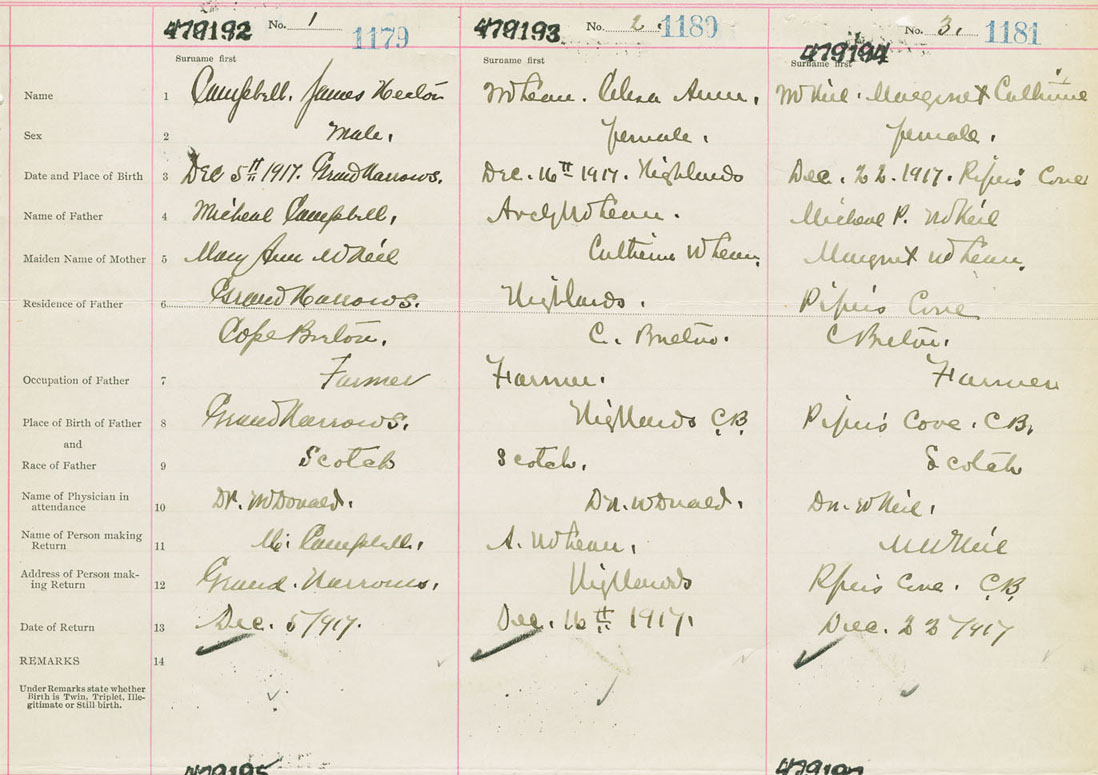 479192 No. 1 1179
Surname first
479193 No. 2. 1180
Surname first
479194 No. 3. 1181
Surname first
Name 1 Campbell. James Hector McLean. Celesa Ann. McNeil. Margret Catherine
Sex 2 Male. female. female.
Date and Place of Birth 3 Dec 5th 1917. Grand Narrows. Dec. 16th 1917. Highlands Dec. 22. 1917. Pipers Cove
Name of Father 4 Micheal Campbell. McLean. Micheal P. McNeil
Maiden Name of Mother 5 Mary Ann McNeil Catherine McLean. Margret McLean.
Residence of Father 6 Grand Narrows. Highlands. Pipers Cove
Cape Breton. C. Breton. C Breton.
Occupation of Father 7 Farmer Farmer. Farmer
Place of Birth of Father 8 Grand Narrows. Highlands C.B. Pipers Cove. C.B.
and
Race of Father 9 Scotch Scotch. Scotch
Name of Physician in
attendance 10 Dr. McDonald. Dr. McDonald. Dr. McNeil.
Name of Person making
Return 11 M. Campbell. A. McLean. M McNeil
Address of Person mak-
ing Return 12 Grand. Narrows. Highlands Pipers Cove. C.B.
Date of Return 13 Dec. 5/1917. Dec. 16th 1917. Dec. 22/1917
REMARKS 14
Under Remarks state whether
Birth is Twin, Triplet, Ille-
gitimate or Still birth.
479195